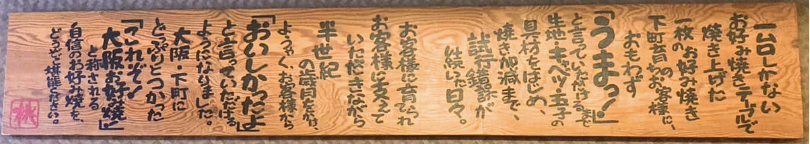 一台しかない
お好み焼きテーブルで
焼き上げた
一枚のお好み焼き
下町育ちのお客様に、
おもわず
「うまっ！」
と言っていただけるまで
生地・キャベツ・玉子の
具材をはじめ、
焼き加減まで、
試行錯誤が
続いた日々。
お客様に育てられ
お客様に支えて
いただきながら
半世紀
の歳月をかけ、
ようやく、お客様から
「おいしかったよ」
と言っていただける
ようになりました。
大阪・下町に
どっぷりとつかった
「これぞ！
大阪お好み焼」
と称される
自信のお好み焼を、
どうぞご堪能ください。